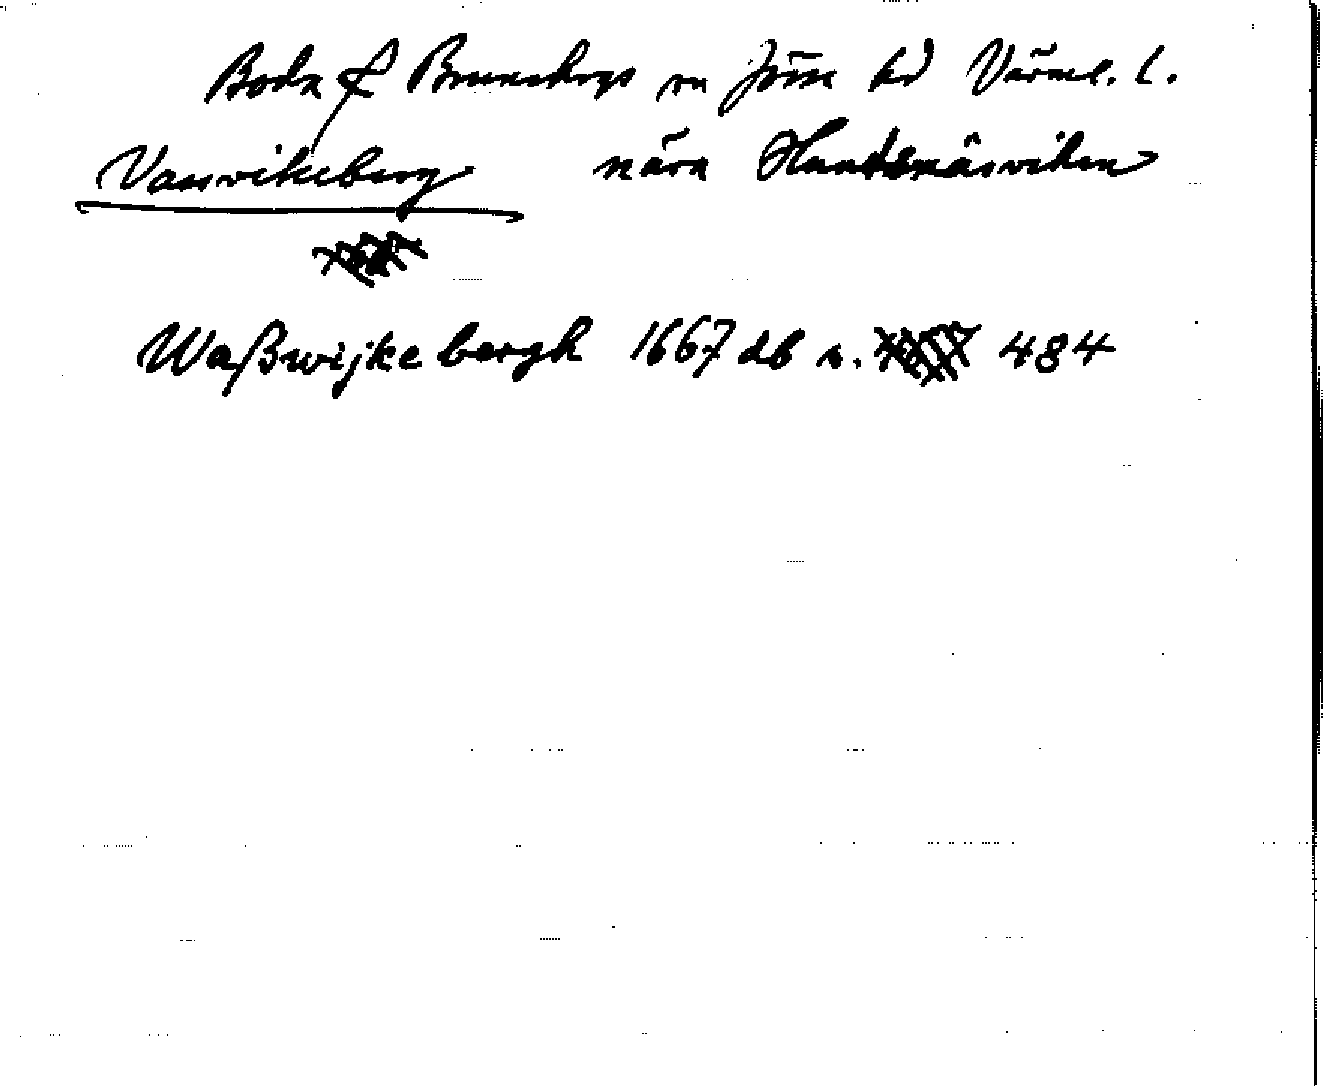 Boda f Brunskogs sn Jösse hd Värml. l.
Vassvikeberg nära Slandsnäsviken
Waßwijkebergh 1667 db s. 484